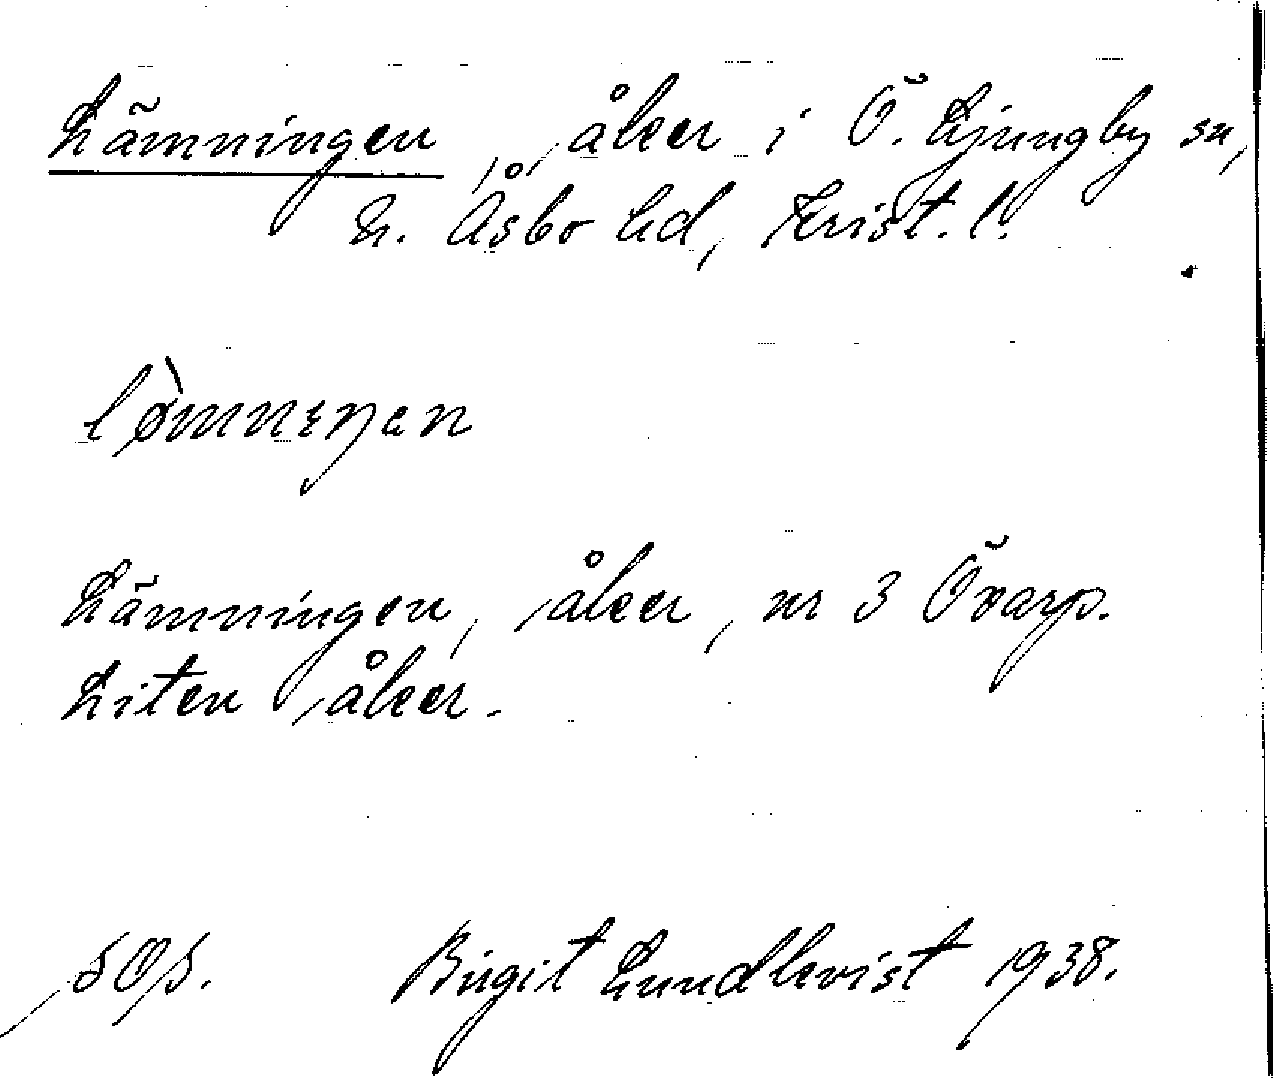 Lämningen, åker i Ö. Ljungby sn,
N. Åsbo hd, Krist. l.
lø̀mnıŋan
Lämningen, åker, nr 3 Övarp.
Liten åker.
Birgit Lundkvist 1938.